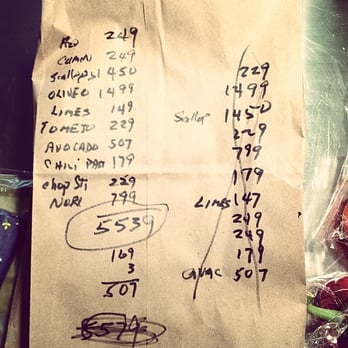 249
249
Scallops 1450
OLIVEO 1499
LIMES 149
TOMETO 229
AVOCADO 507
CHILI PAST 179
chop Sti 229
NORI 799
5539
169
3
507
5574
229
1499
Scallop 1450
229
799
179
LIMES 147
249
249
179
507